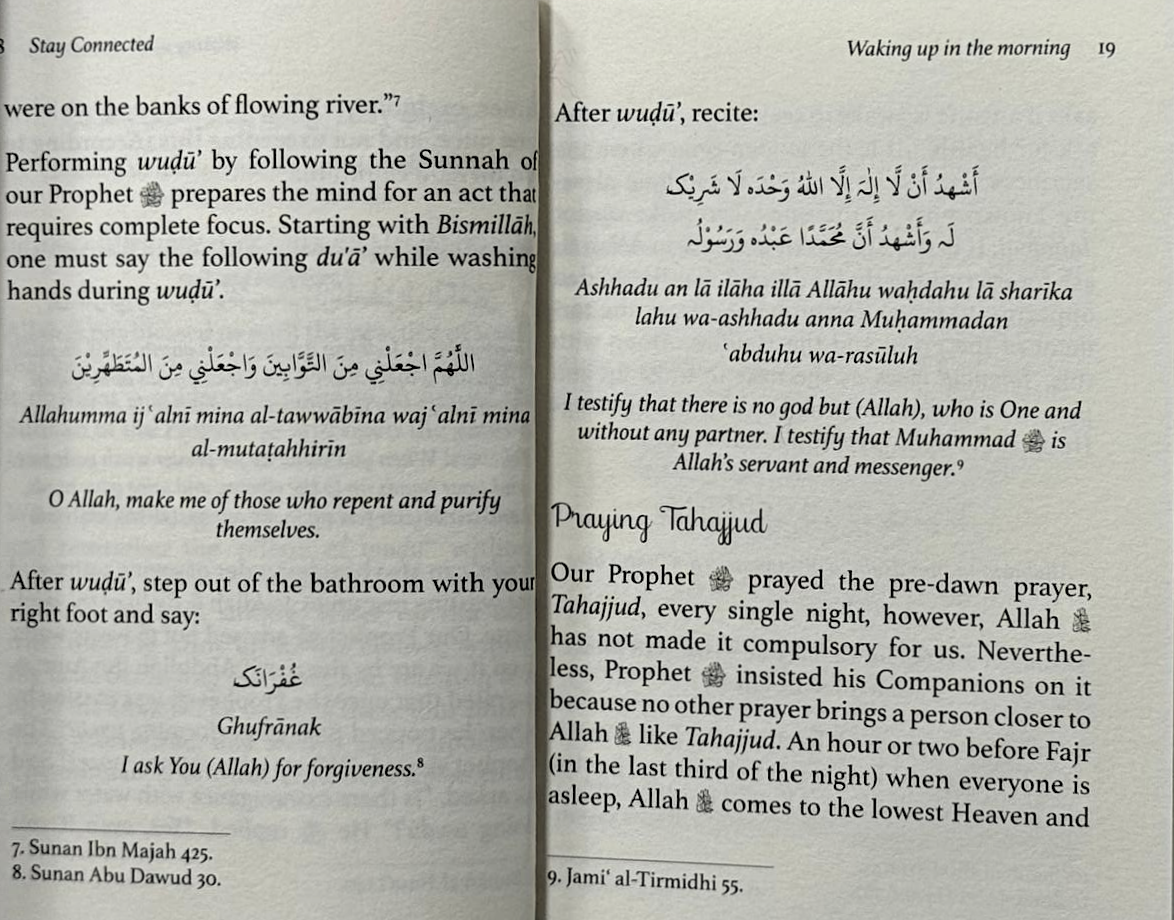 Stay Connected
were on the banks of flowing river.”⁷
Performing wuḍū’ by following the Sunnah of
our Prophet ﷺ prepares the mind for an act that
requires complete focus. Starting with Bismillāh,
one must say the following du'ā’ while washing
hands during wuḍū’.
اللَّهُمَّ اجْعَلْنِي مِنَ التَّوَّابِينَ وَاجْعَلْنِي مِنَ الْمُتَطَهِّرِيْنَ
Allahumma ij‘alnī mina al-tawwābīna waj‘alnī mina
al-mutaṭahhirīn
O Allah, make me of those who repent and purify
themselves.
After wuḍū’, step out of the bathroom with your
right foot and say:
غُفْرَانَکَ
Ghufrānak
I ask You (Allah) for forgiveness.⁸
7. Sunan Ibn Majah 425.
8. Sunan Abu Dawud 30.
Waking up in the morning 19
After wuḍū’, recite:
أَشْهَدُ أَنْ لَّا إِلٰہَ إِلَّا اللهُ وَحْدَہ لَا شَرِيْکَ
لَہ وَأَشْهَدُ أَنَّ مُحَمَّدًا عَبْدُہ وَرَسُوْلُہ
Ashhadu an lā ilāha illā Allāhu waḥdahu lā sharīka
lahu wa-ashhadu anna Muḥammadan
‘abduhu wa-rasūluh
I testify that there is no god but (Allah), who is One and
without any partner. I testify that Muhammad ﷺ is
Allah’s servant and messenger.⁹
Praying Tahajjud
Our Prophet ﷺ prayed the pre-dawn prayer,
Tahajjud, every single night, however, Allah
has not made it compulsory for us. Neverthe-
less, Prophet ﷺ insisted his Companions on it
because no other prayer brings a person closer to
Allah like Tahajjud. An hour or two before Fajr
(in the last third of the night) when everyone is
asleep, Allah comes to the lowest Heaven and
9. Jami‘ al-Tirmidhi 55.